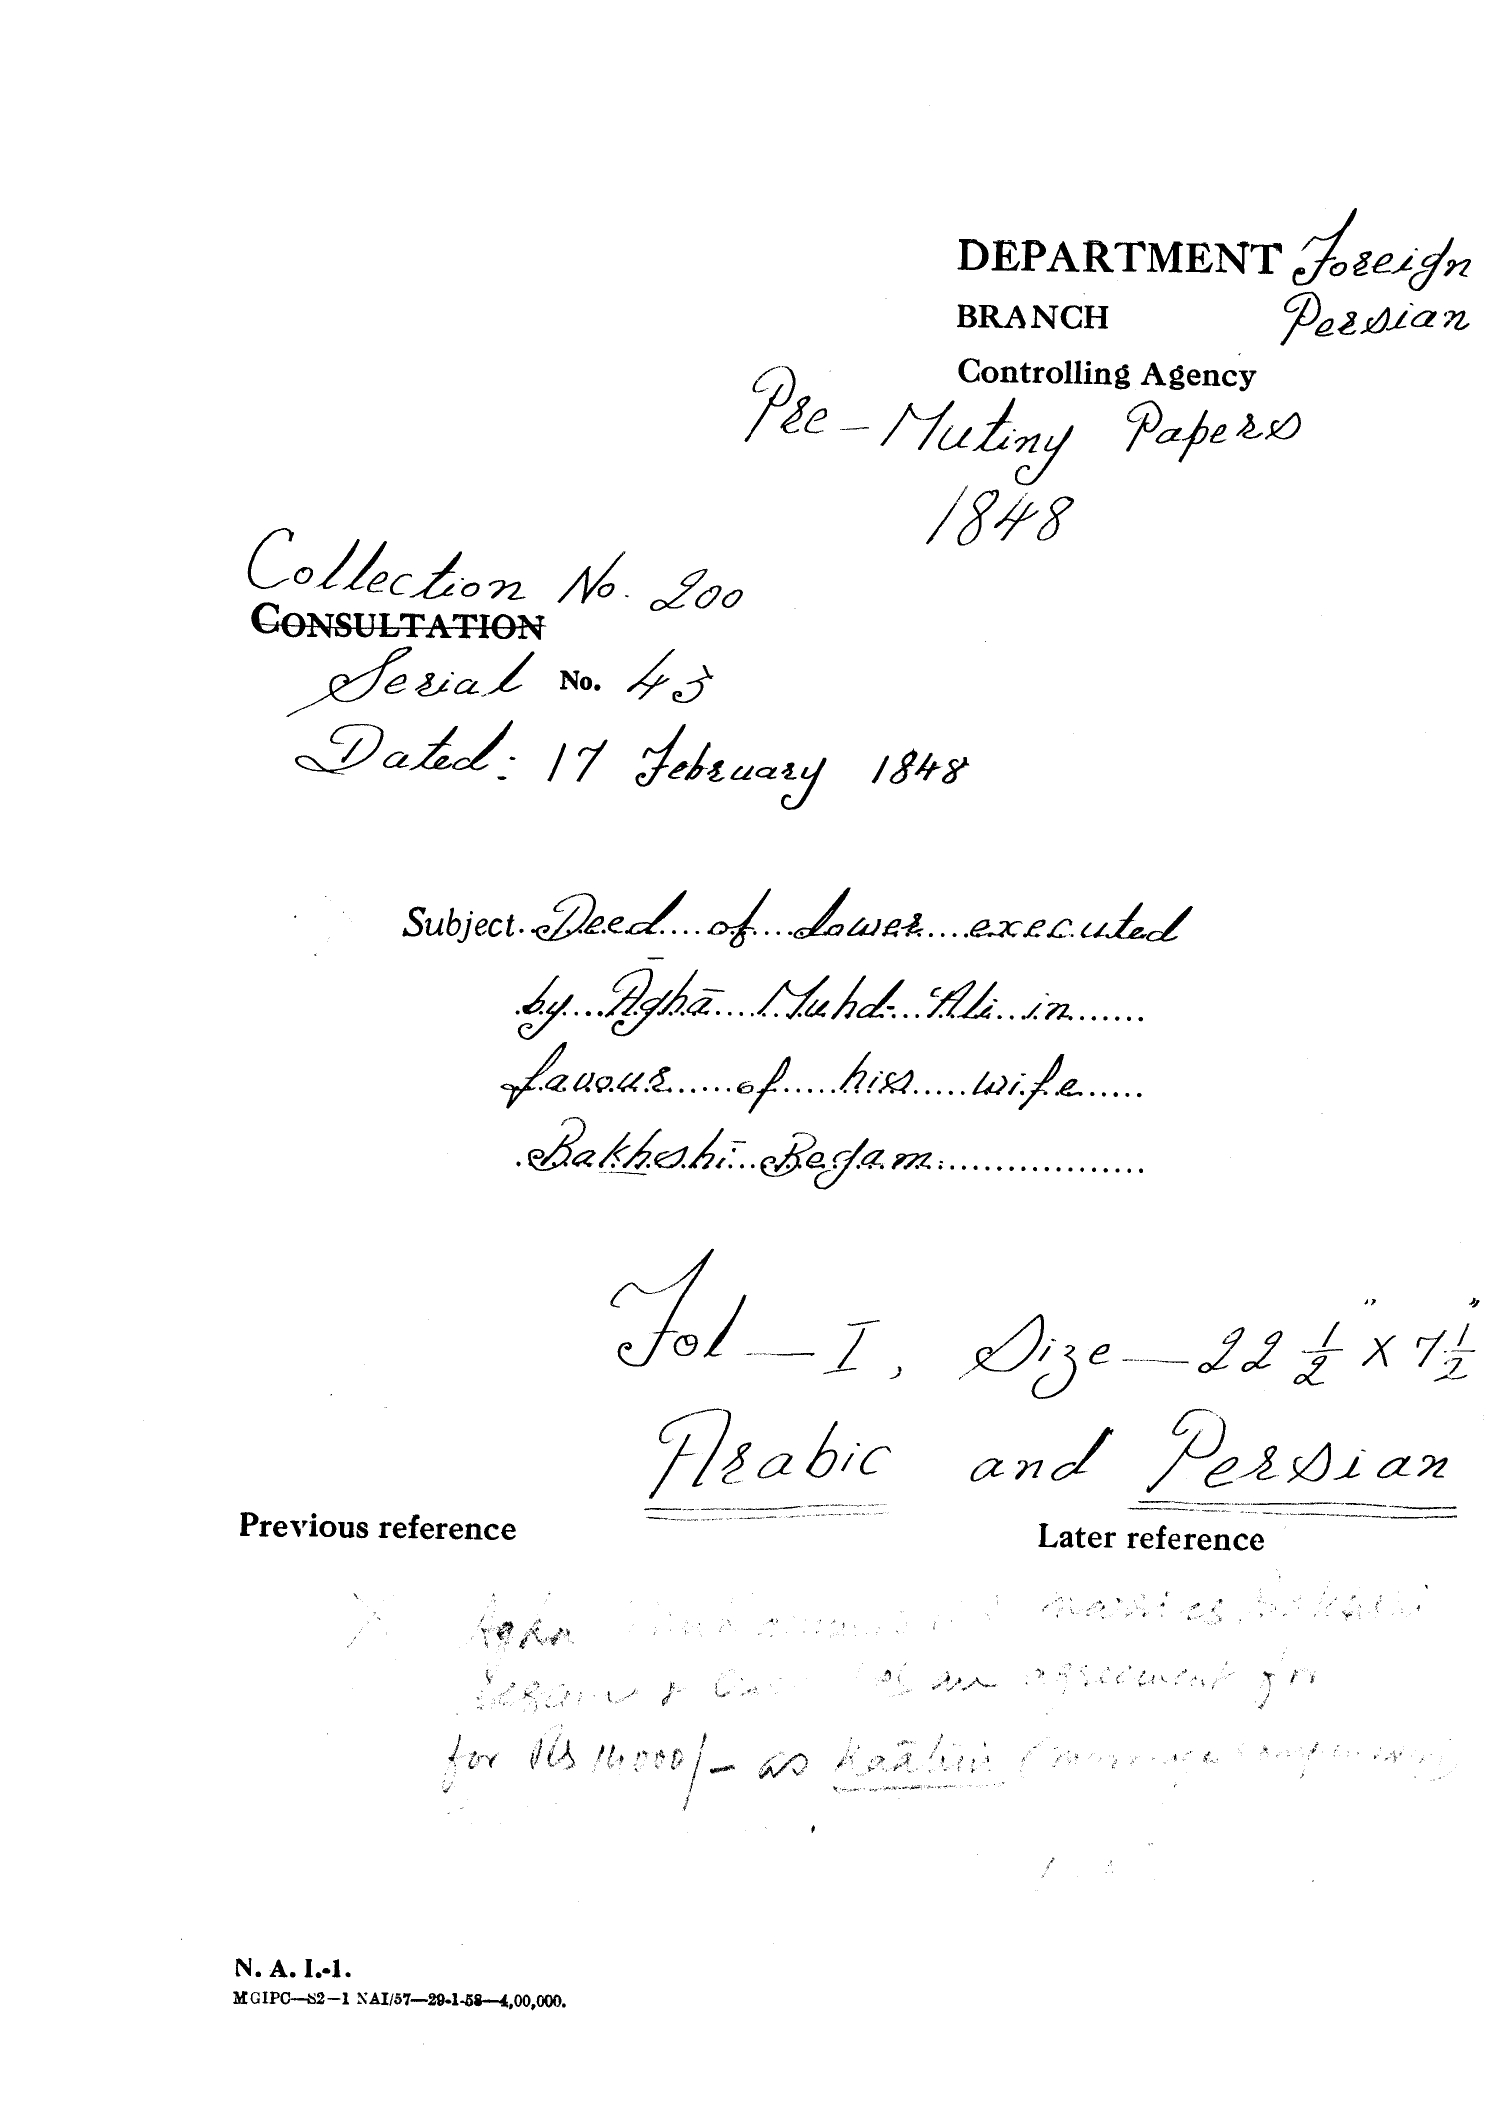 DEPARTMENT Foreign
BRANCH Persian
Controlling Agency
Pre-Mutiny Papers
1848
Collection No. 200
CONSULTATION
Serial No. 43
Dated: 17 February 1848
Subject. Deed of dower executed
by Āghā Muhd. 'Ali in
favour of his wife
Bakhshī Begam.
Fol — I, Size — 22 1/2" X 7 1/2"
Arabic and Persian
Previous reference
Later reference
Agha marries
Begam & an agreement for
for Rs 14000/- as
N. A. I.-1.
MGIPC—S2—1 NAI/57—29-1-58—4,00,000.